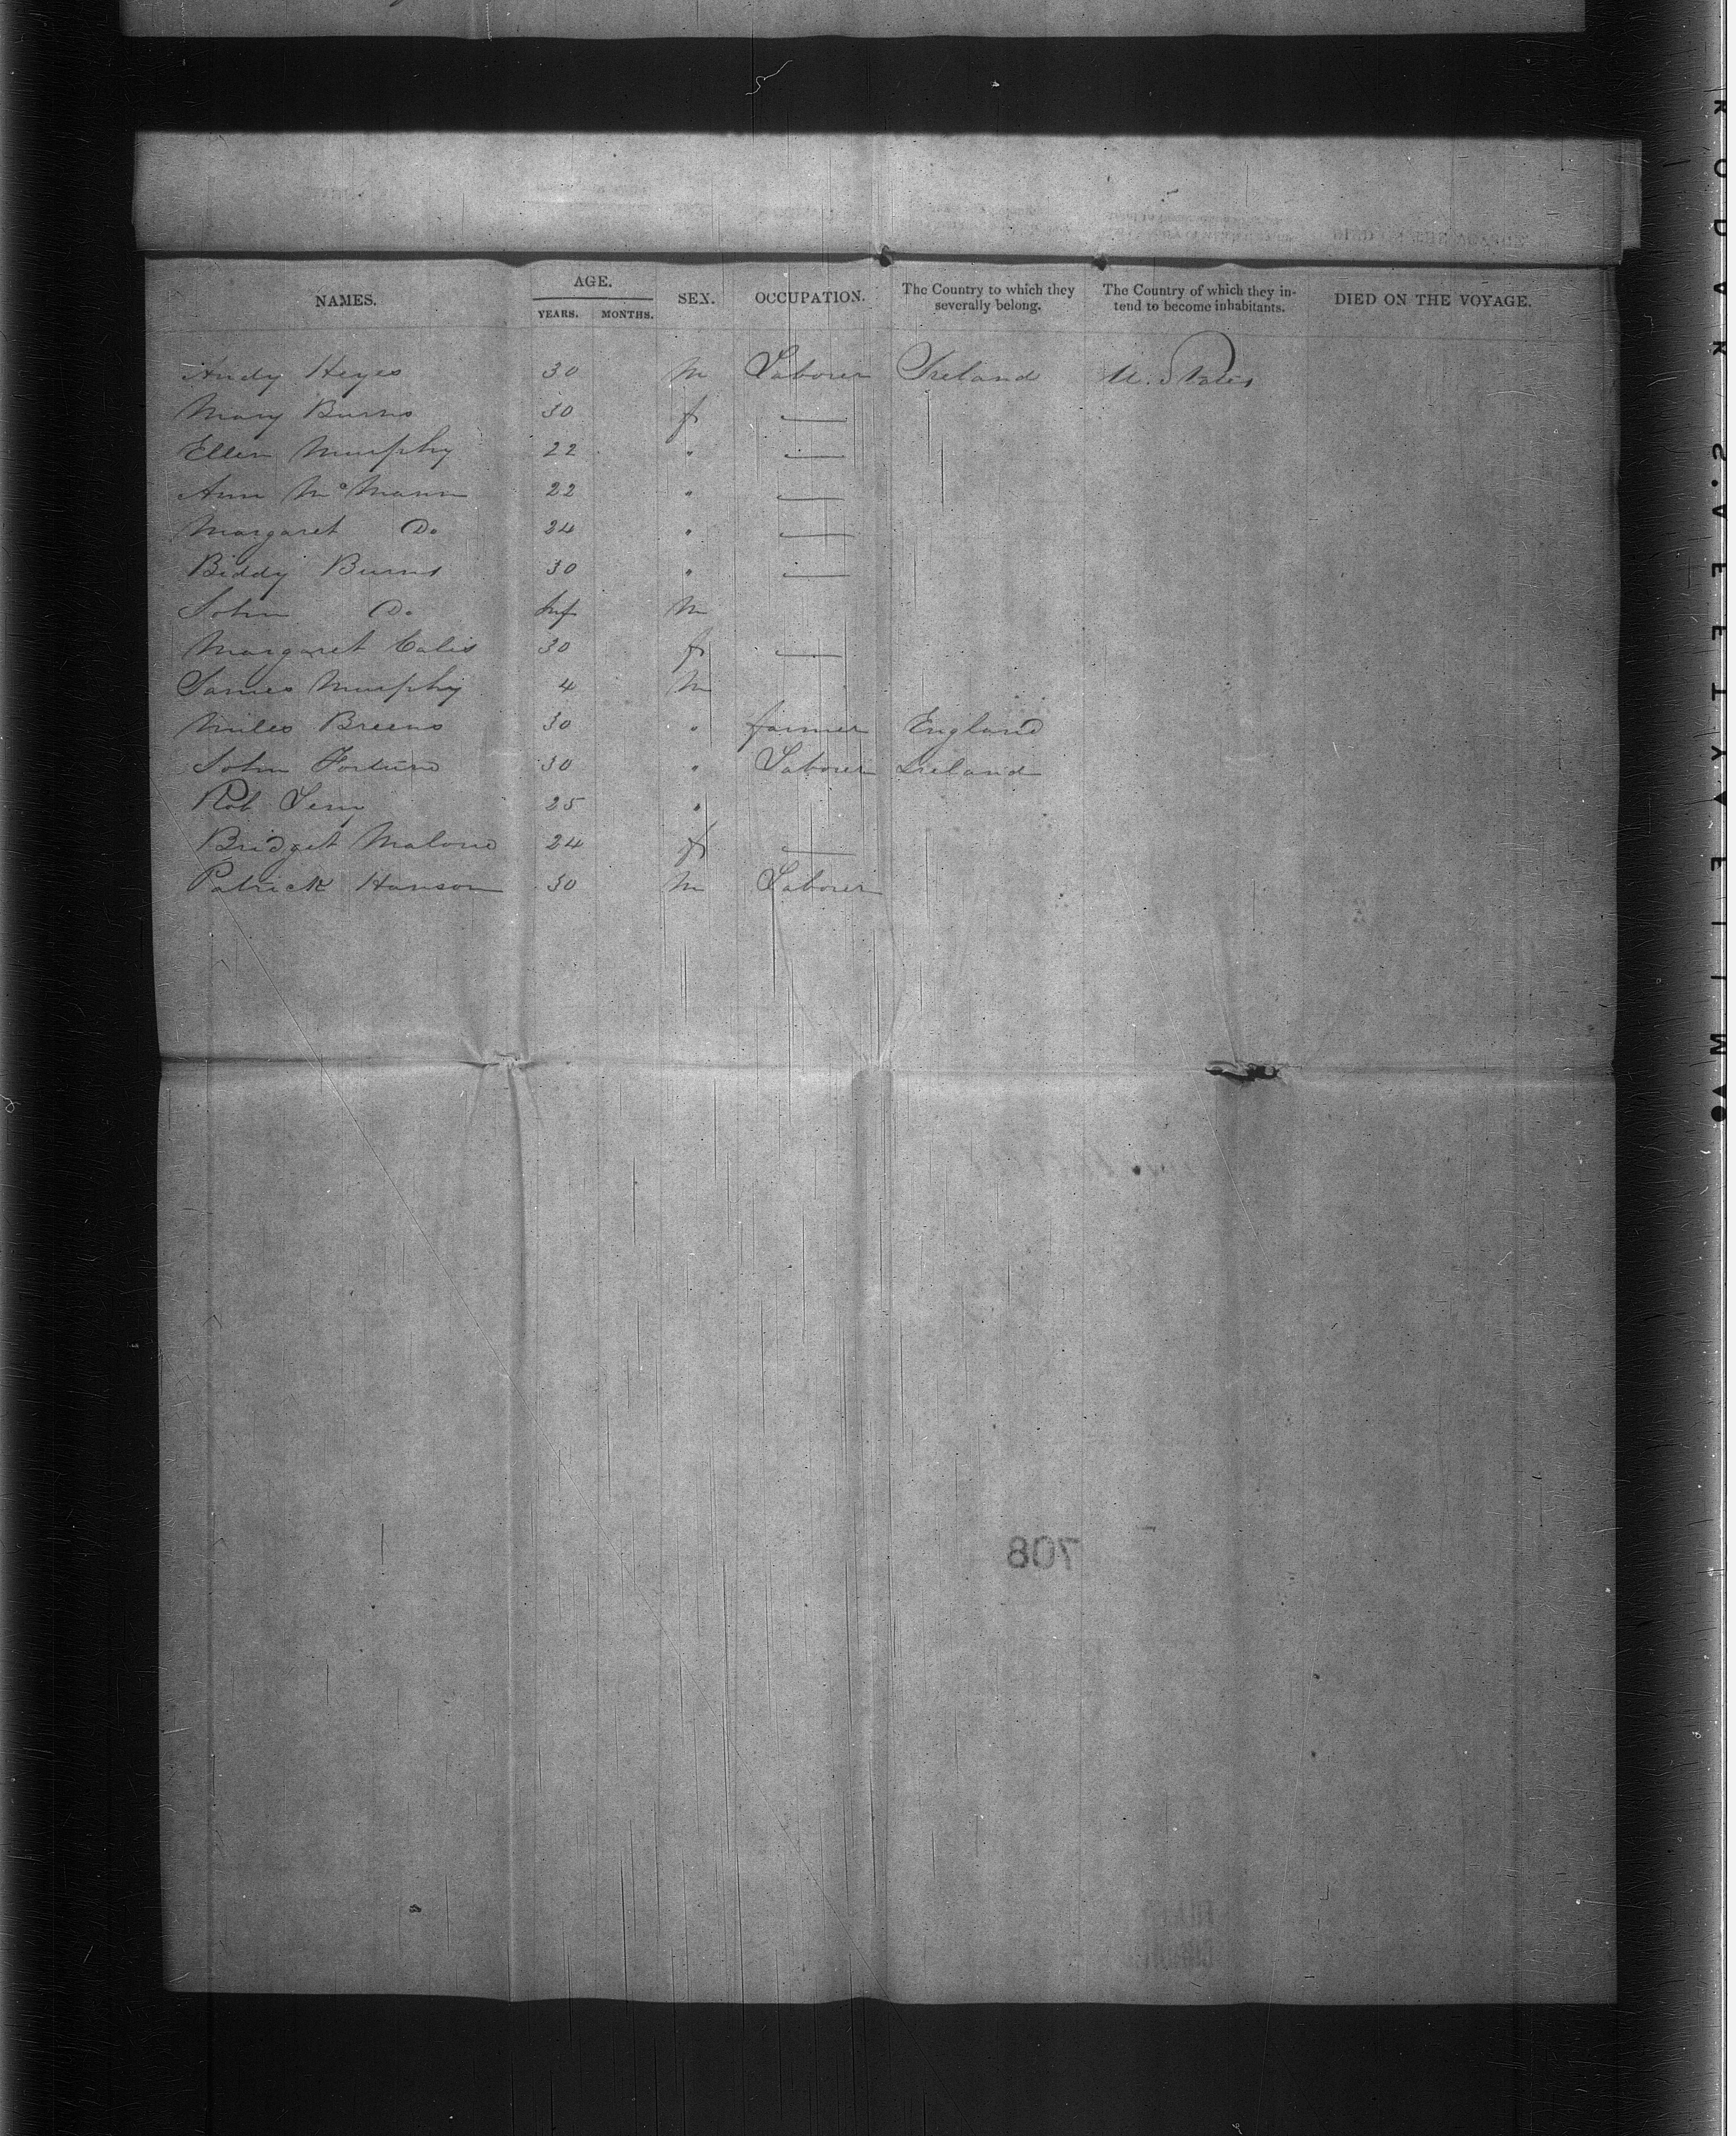 NAMES. AGE. YEARS. MONTHS. SEX. OCCUPATION. The Country to which they severally belong. The Country of which they intend to become inhabitants. DIED ON THE VOYAGE.
Andy Heyes 30 M Laborer Ireland U. States
Mary Burns 30 f —
Ellen Murphy 22 " —
Ann McMann 22 " —
Margaret Do 24 " —
Biddy Burns 30 " —
John Do Inf M
Margaret Calis 30 f —
James Murphy 4 M
Miles Breens 30 " farmer England
John Fortune 30 " Laborer Ireland
Rob 25 "
Bridget Malone 24 f —
Patrick Hanson 30 M Laborer
708